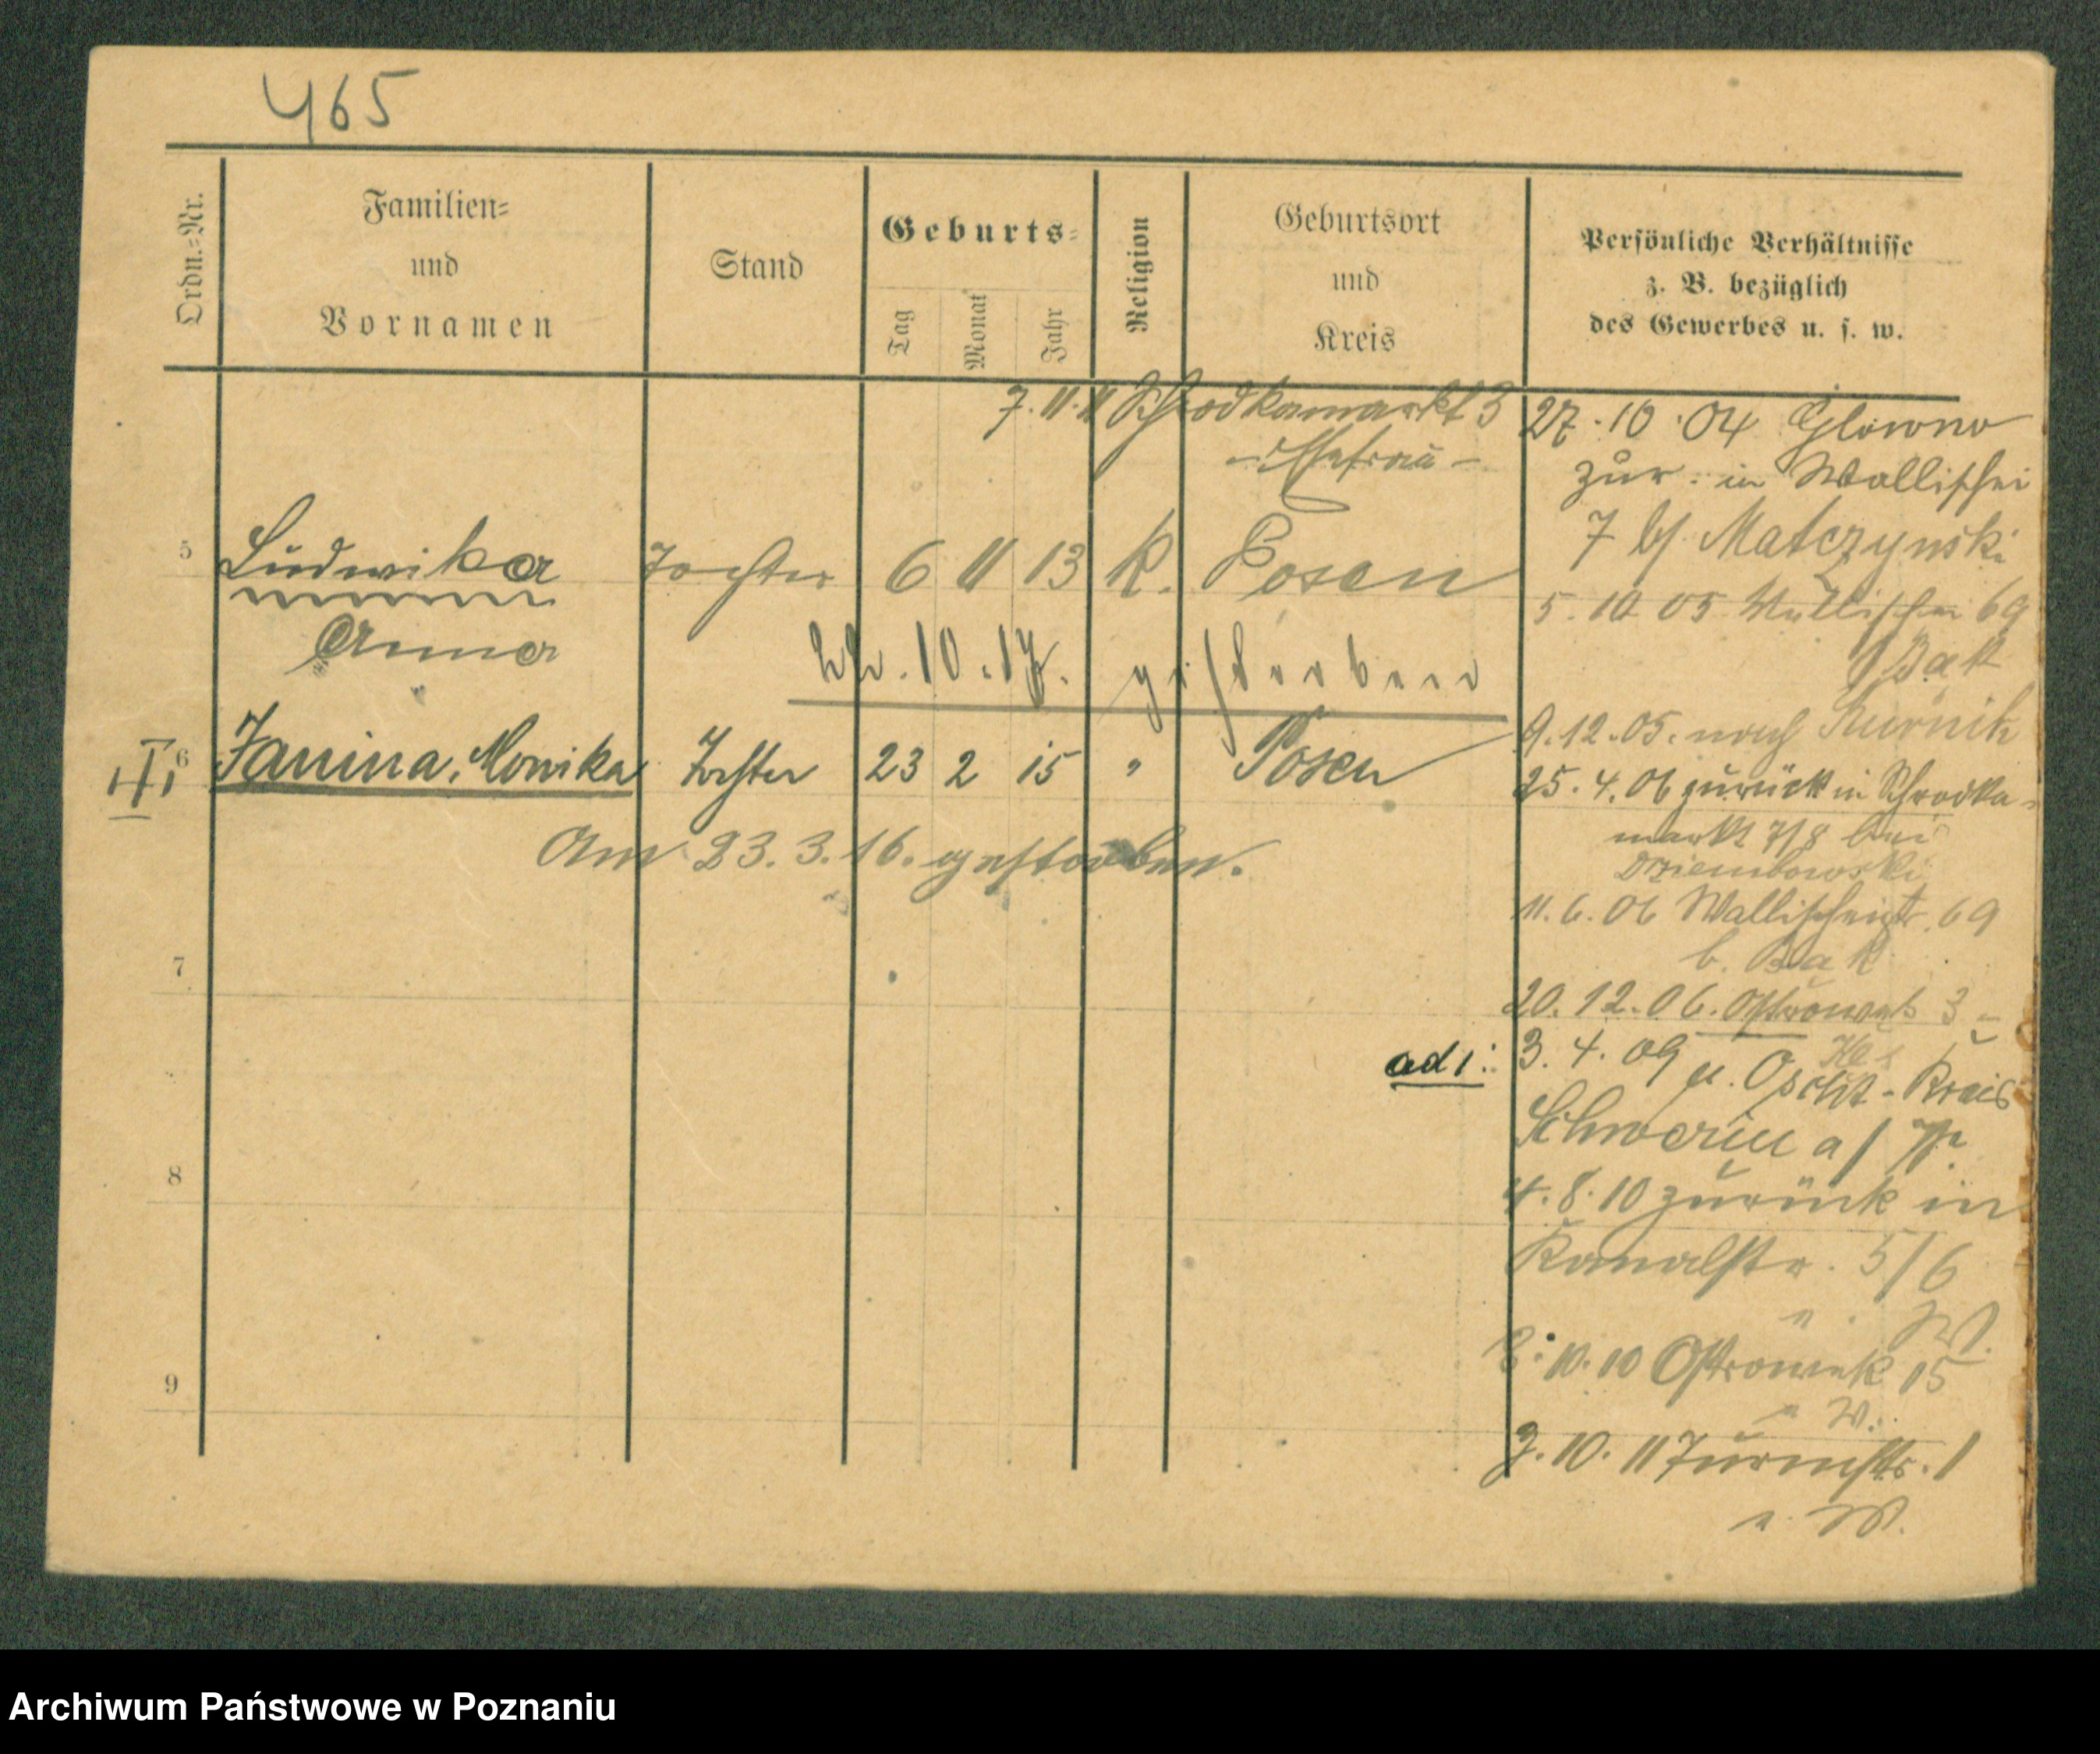 465
Ordn.-Nr.
Familien-
und
Vornamen
Stand
Geburts-
Tag
Monat
Jahr
Religion
Geburtsort
und
Kreis
Persönliche Verhältnisse
z. B. bezüglich
des Gewerbes u. s. w.
7. 11. 11 Schrodkamarkt 3
- Ehefrau -
5 Ludwika Tochter 6 11 13 K. Posen
Anna
22. 10. 17. gestorben
III 6 Janina, Monika Tochter 23 2 15 " Posen
Am 23. 3. 16. gestorben.
7
8
9
27. 10. 04 Glowno
zur. in Wallischei
7 b/ Matczynski
5. 10 05 Wallischei 69
Bak
9. 12. 05. nach Kurnik
25. 4. 06 zurück in Schrodka-
markt 7/8 bei
Dziembowski
11. 6. 06 Wallischeistr. 69
b. Bak
20. 12. 06. Ostrowek 3
ad 1: 3. 4. 09 n. Opcht - Kreis
Schwerin a/ W.
4. 8. 10 zurück in
Kanalstr. 5/6
n. W.
10. 10 Ostrowek 15
n W.
7. 10. 11 Turmstr. 1
n. W.
Archiwum Państwowe w Poznaniu